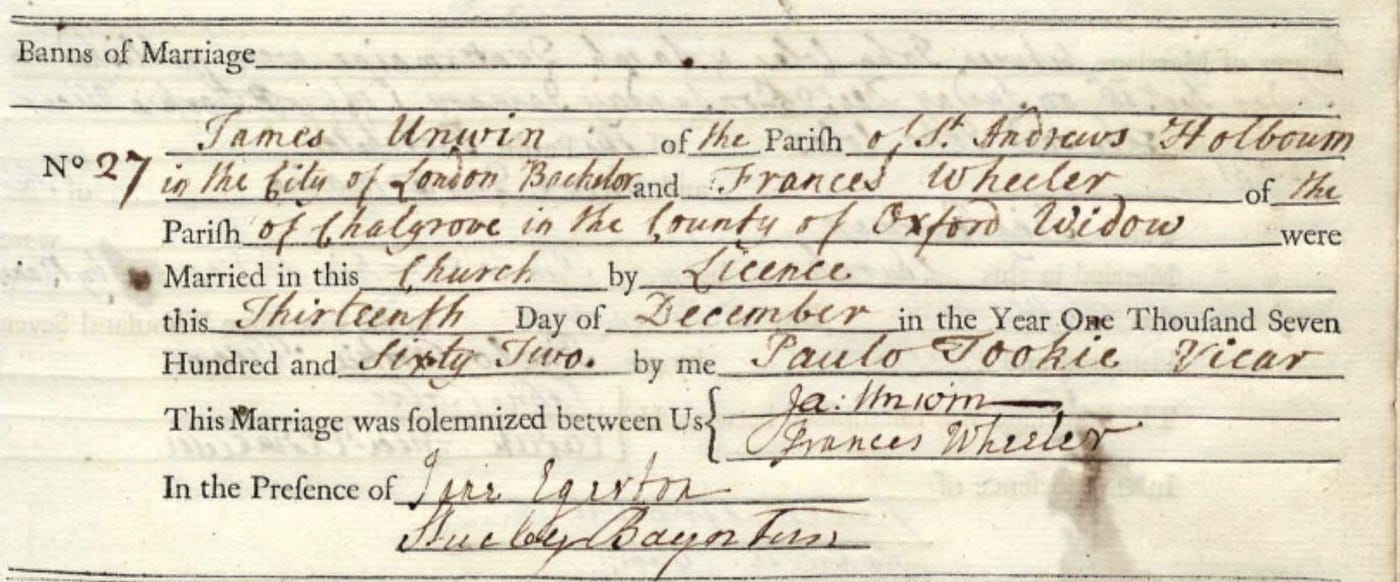 Banns of Marriage
James Unwin of the Pariſh of St. Andrews Holbourn
No 27 in the City of London Bachelor and Frances Wheeler of the
Pariſh of Chalgrove in the County of Oxford Widow were
Married in this Church by Licence
this Thirteenth Day of December in the Year One Thouſand Seven
Hundred and Sixty Two. by me Paulo Tookie Vicar
This Marriage was ſolemnized between Us { Ja: Unwin
Frances Wheeler
In the Preſence of Jane Egerton
BaynTun